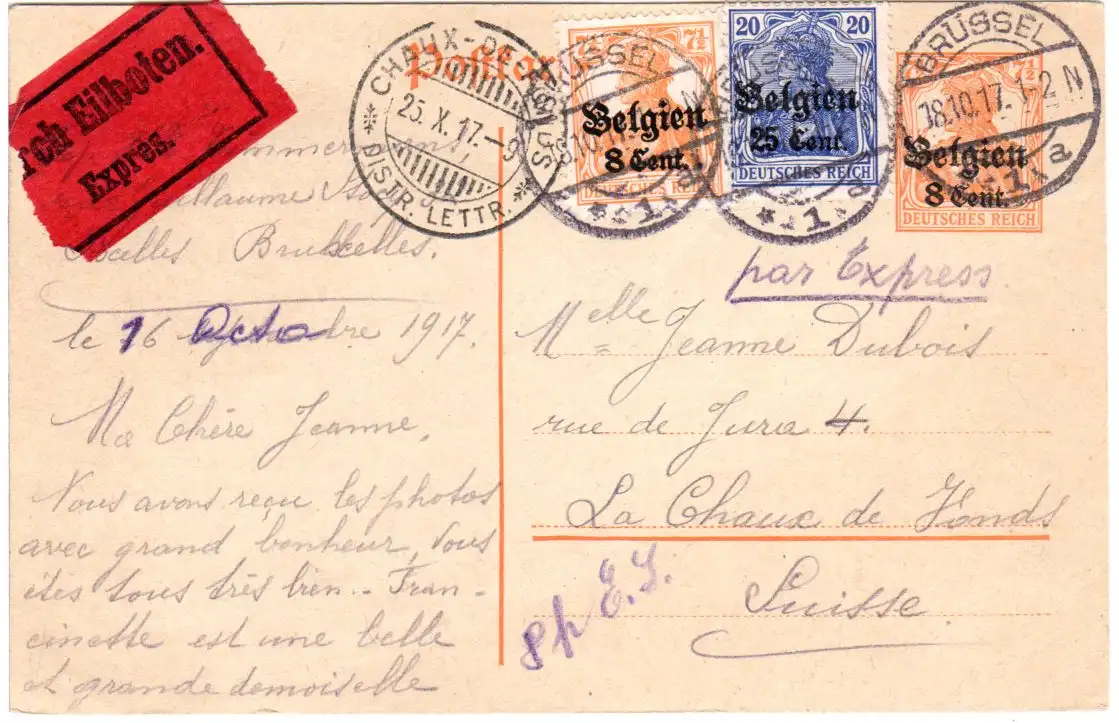 rch Eilboten.
Expres.
Postkar
CHAUX-DE-FONDS
25. X. 17.-9
DISTR. LETTR.
7½ 7½
Belgien
8 Cent.
DEUTSCHES REICH
20 20
Belgien
25 Cent.
DEUTSCHES REICH
BRÜSSEL
BRÜSSEL
1
BRÜSSEL
18.10.17. 1-2 N
* 1 * a
7½
Belgien
8 Cent.
DEUTSCHES REICH
llaume
Ixelles Bruxelles.
le 16 Octobre 1917.
Ma Chère Jeanne,
Nous avons reçu les photos
avec grand bonheur, Vous
êtes tous très bien.. Fran-
cinette est une belle
et grande demoiselle
par Express
Melle Jeanne Dubois
rue de Jura 4.
La Chaux de Fonds
Suisse
8p E.S.